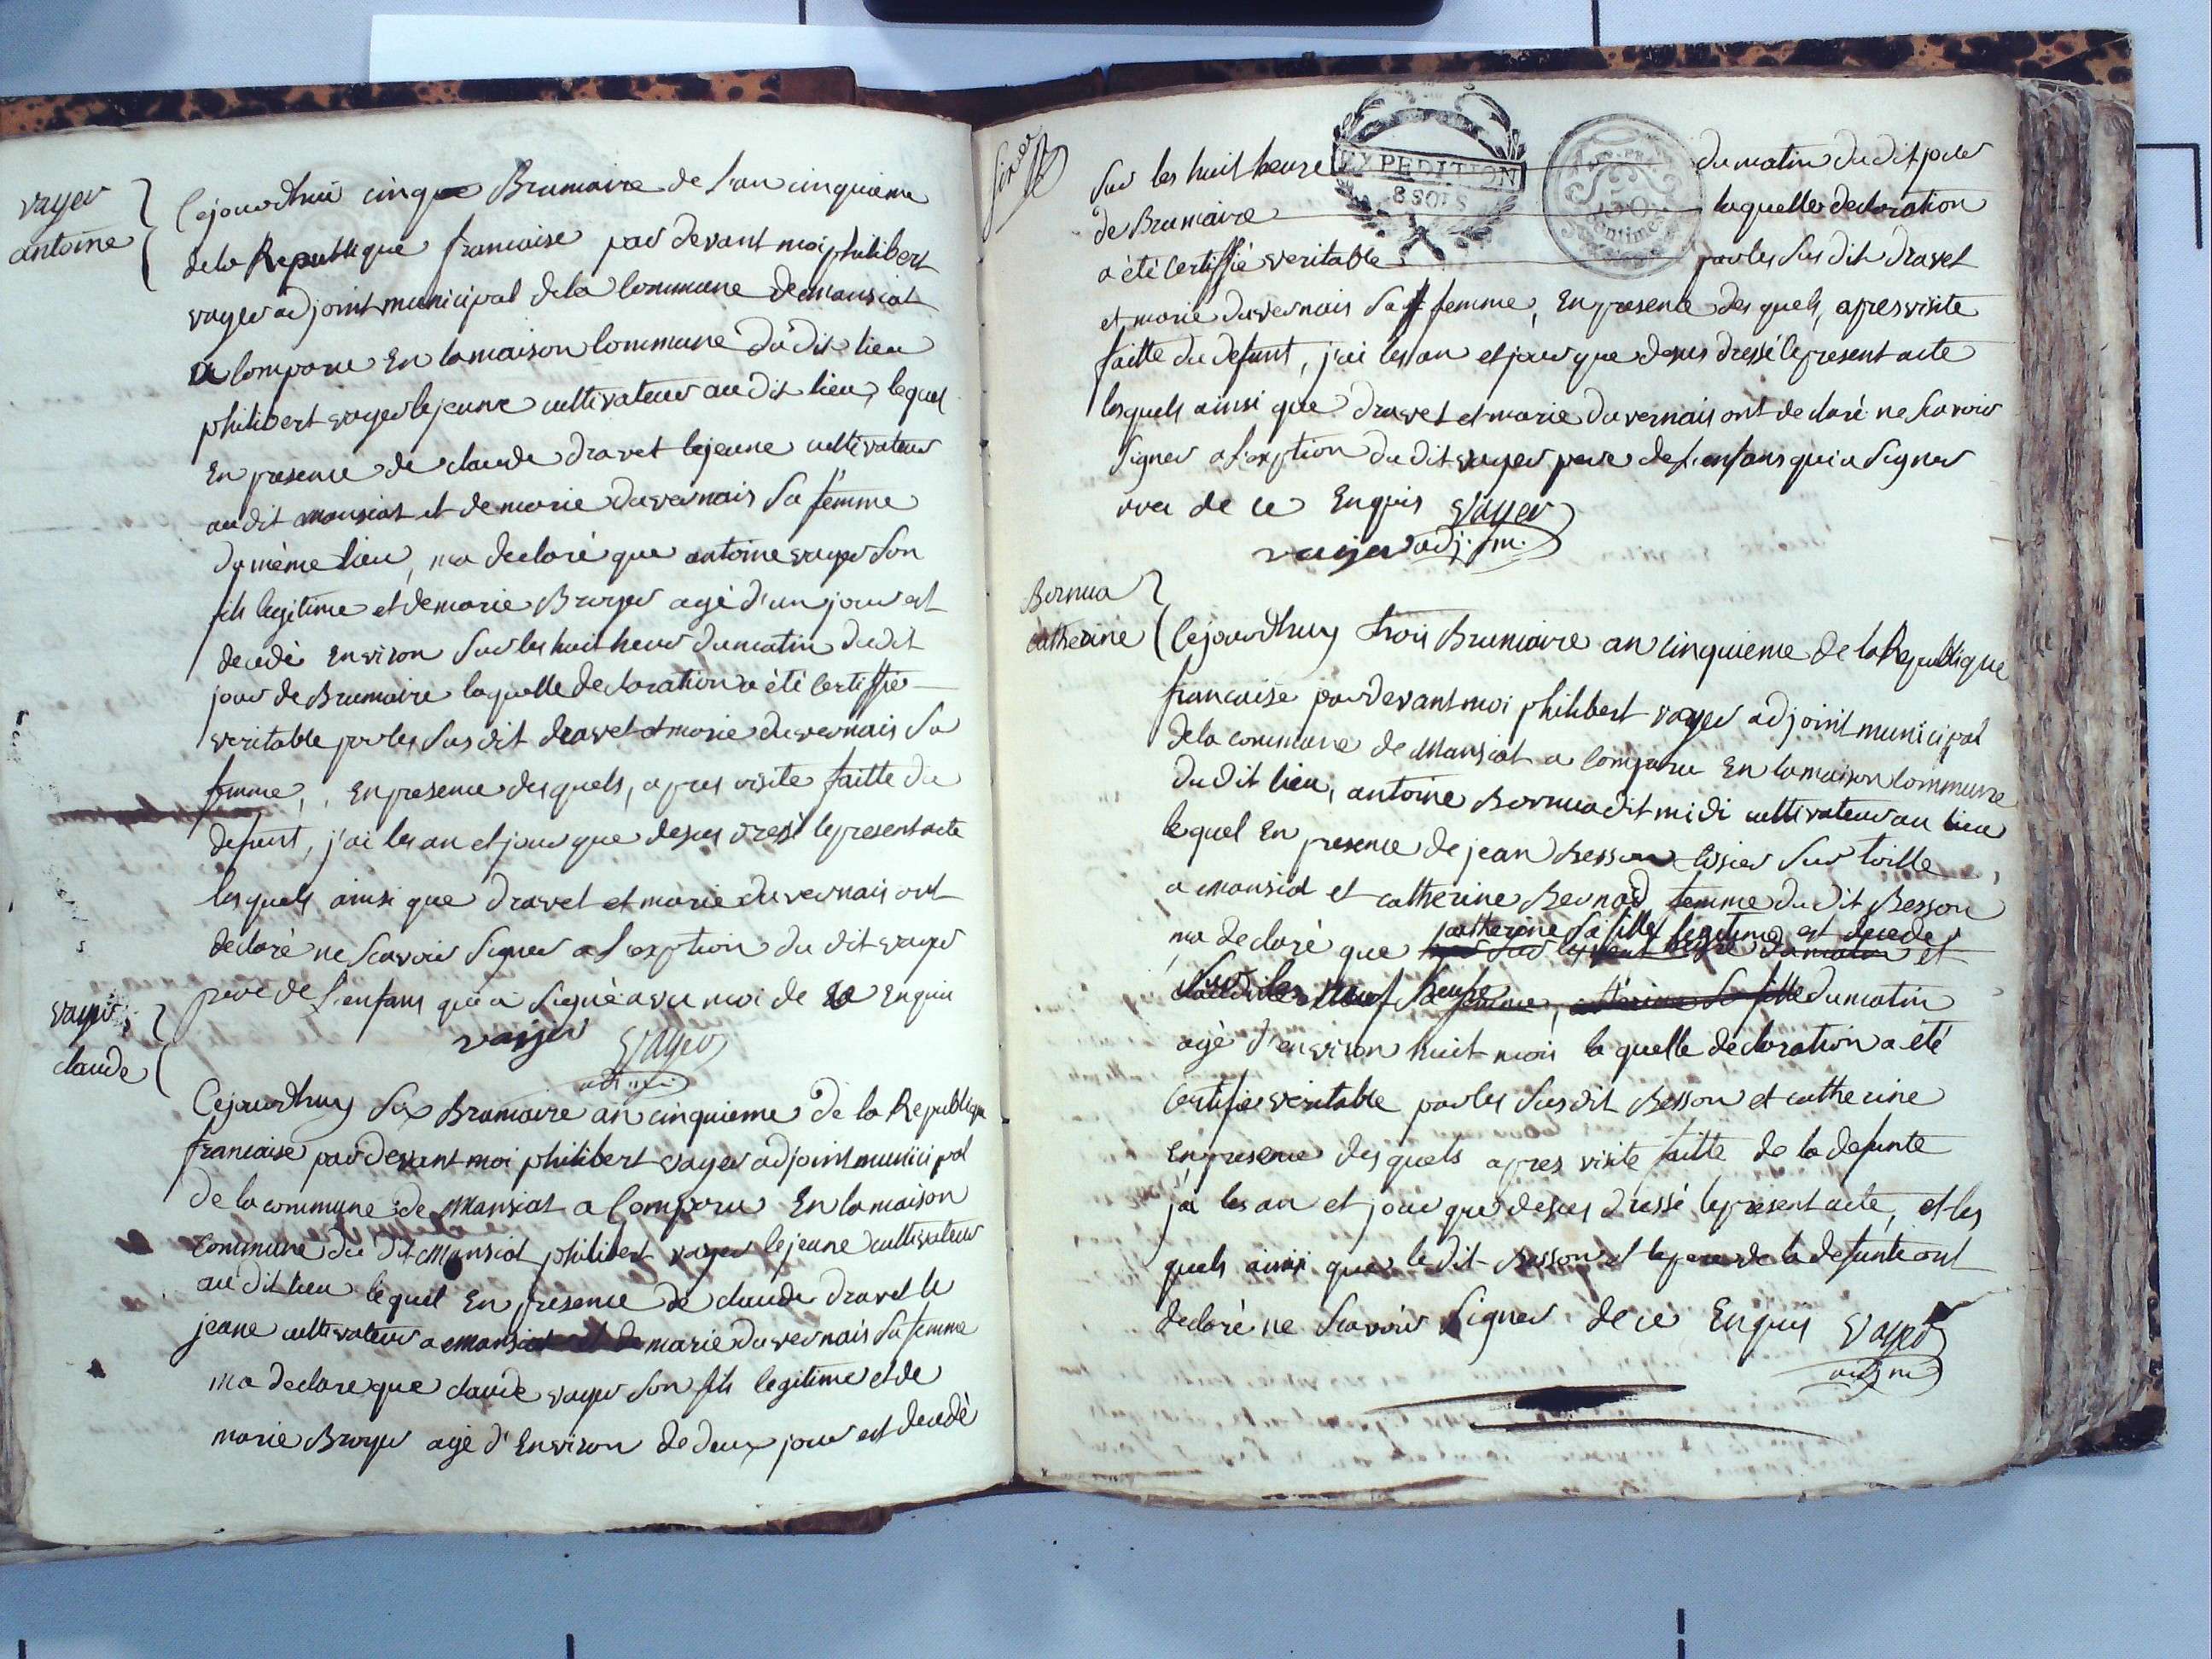 vayer
antoine
Cejourdhui cinq Brumaire de l'an cinquieme
de la Republique francaise par devant moi philibert
vayer adjoint municipal dela Commune de mansiat
a Comparu En la maison Commune du dit lieu
philibert vayer le jeune cultivateur au dit lieu, lequel
En presence de claude dravet le jeune cultivateur
au dit mansiat et de marie duvernais sa femme
du même lieu, ma declaré que antoine vayer son
fils legitime et de marie Broyer agé d'un jour est
decedé Environ sur les huit heur du matin du dit
jour de Brumaire laquelle declaration a été Certiffié
veritable par les susdit dravet et marie duvernais sa
femme, En presence des quels, apres visite faitte du
defunt, j'ai les an et jour que desus dressé le present acte
lesquels ainsi que dravet et marie duvernais ont
declaré ne scavoir signer a l'exption du dit vayer
pere de l'enfans qui a signé avec moi de ce Enquis
vayer vayer
adj. m.
vayer
claude
Cejourdhuy six Brumaire an cinquieme de la Republique
francaise par devant moi philibert vayer adjoint municipal
de la commune de Mansiat a Comparu En la maison
Commune du dit Mansiat philibert vayer le jeune cultivateur
au dit lieu lequel En presence de claude dravet le
jeune cultivateur a mansiat et de marie duvernais sa femme
ma declare que claude vayer son fils legitime et de
marie Broyer agé d'Environ de deux jour est decedé
Sur les huit heure du matin du dit jour
EXPEDITION
8 SOLS
50
centimes
de Brumaire laquelle declaration
a été Certiffié veritable par les sus dit dravet
et marie duvernais sa femme, En presence des quels, apres visite
faitte du defunt, j'ai les an et jour que desus dressé le present acte
lesquels ainsi que dravet et marie duvernais ont declaré ne scavoir
signer a l'exption du dit vayer pere de l'enfans qui a signer
avec de ce Enquis vayer
vayer adj. m.
catherine
Cejourdhuy trois Brumaire an cinquieme de la Republique
francaise par devant moi philibert vayer adjoint municipal
dela commune de Mansiat a Comparu En la maison Commune
du dit lieu, antoine dit midi cultivateur au lieu
lequel En presence de jean Besson tisier sur toille
a mansiat et catherine femme du dit Besson
ma declaré que catherine sa fille legitime est decedé
sur les neuf heure du matin
agé d'environ huit mois la quelle declaration a été
Certifié veritable par les sus dit Besson et catherine
En presence des quels apres visite faitte de la defunte
j'ai les an et jour que desus dressé le present acte, et les
quels ainsi que le dit Besson et le pere de la defunte ont
declaré ne scavoir signer de ce Enquis vayer
adj m